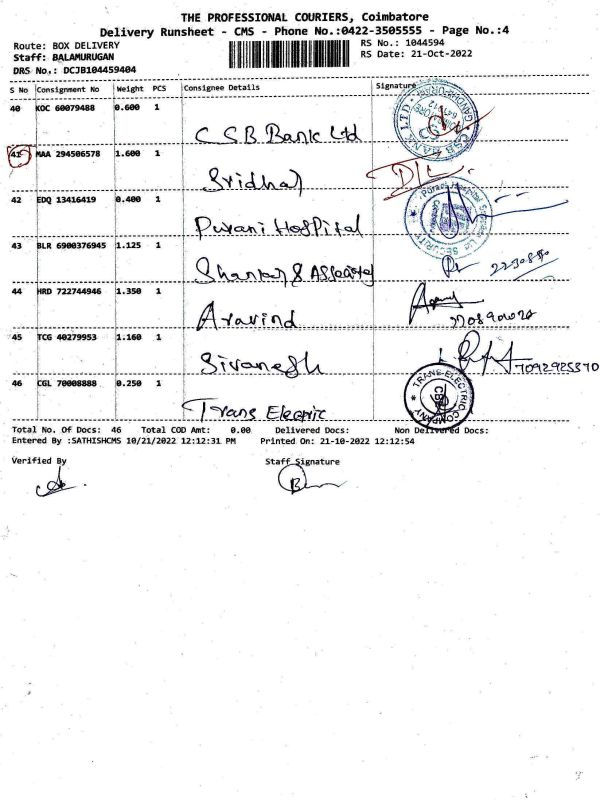 THE PROFESSIONAL COURIERS, Coimbatore
Delivery Runsheet - CMS - Phone No.:0422-3505555 - Page No.:4
Route: BOX DELIVERY RS No.: 1044594
Staff: BALAMURUGAN RS Date: 21-Oct-2022
DRS No.: DCJB104459404
S No Consignment No Weight PCS Consignee Details Signature
40 KOC 60079488 0.600 1
CSB Bank Ltd
41 MAA 294506578 1.600 1
Sridhar
42 EDQ 13416419 0.400 1
Purani Hospital
43 BLR 6900376945 1.125 1
Shankar & Associates
44 HRD 722744946 1.350 1
Aravind
45 TCG 40279953 1.160 1
Sivanesh 7092925370
46 CGL 70008888 0.250 1
Trans Electric
TRANS ELECTRIC COMPANY
CBE
Total No. Of Docs: 46 Total COD Amt: 0.00 Delivered Docs: Non Delivered Docs:
Entered By :SATHISHCMS 10/21/2022 12:12:31 PM Printed On: 21-10-2022 12:12:54
Verified By Staff Signature